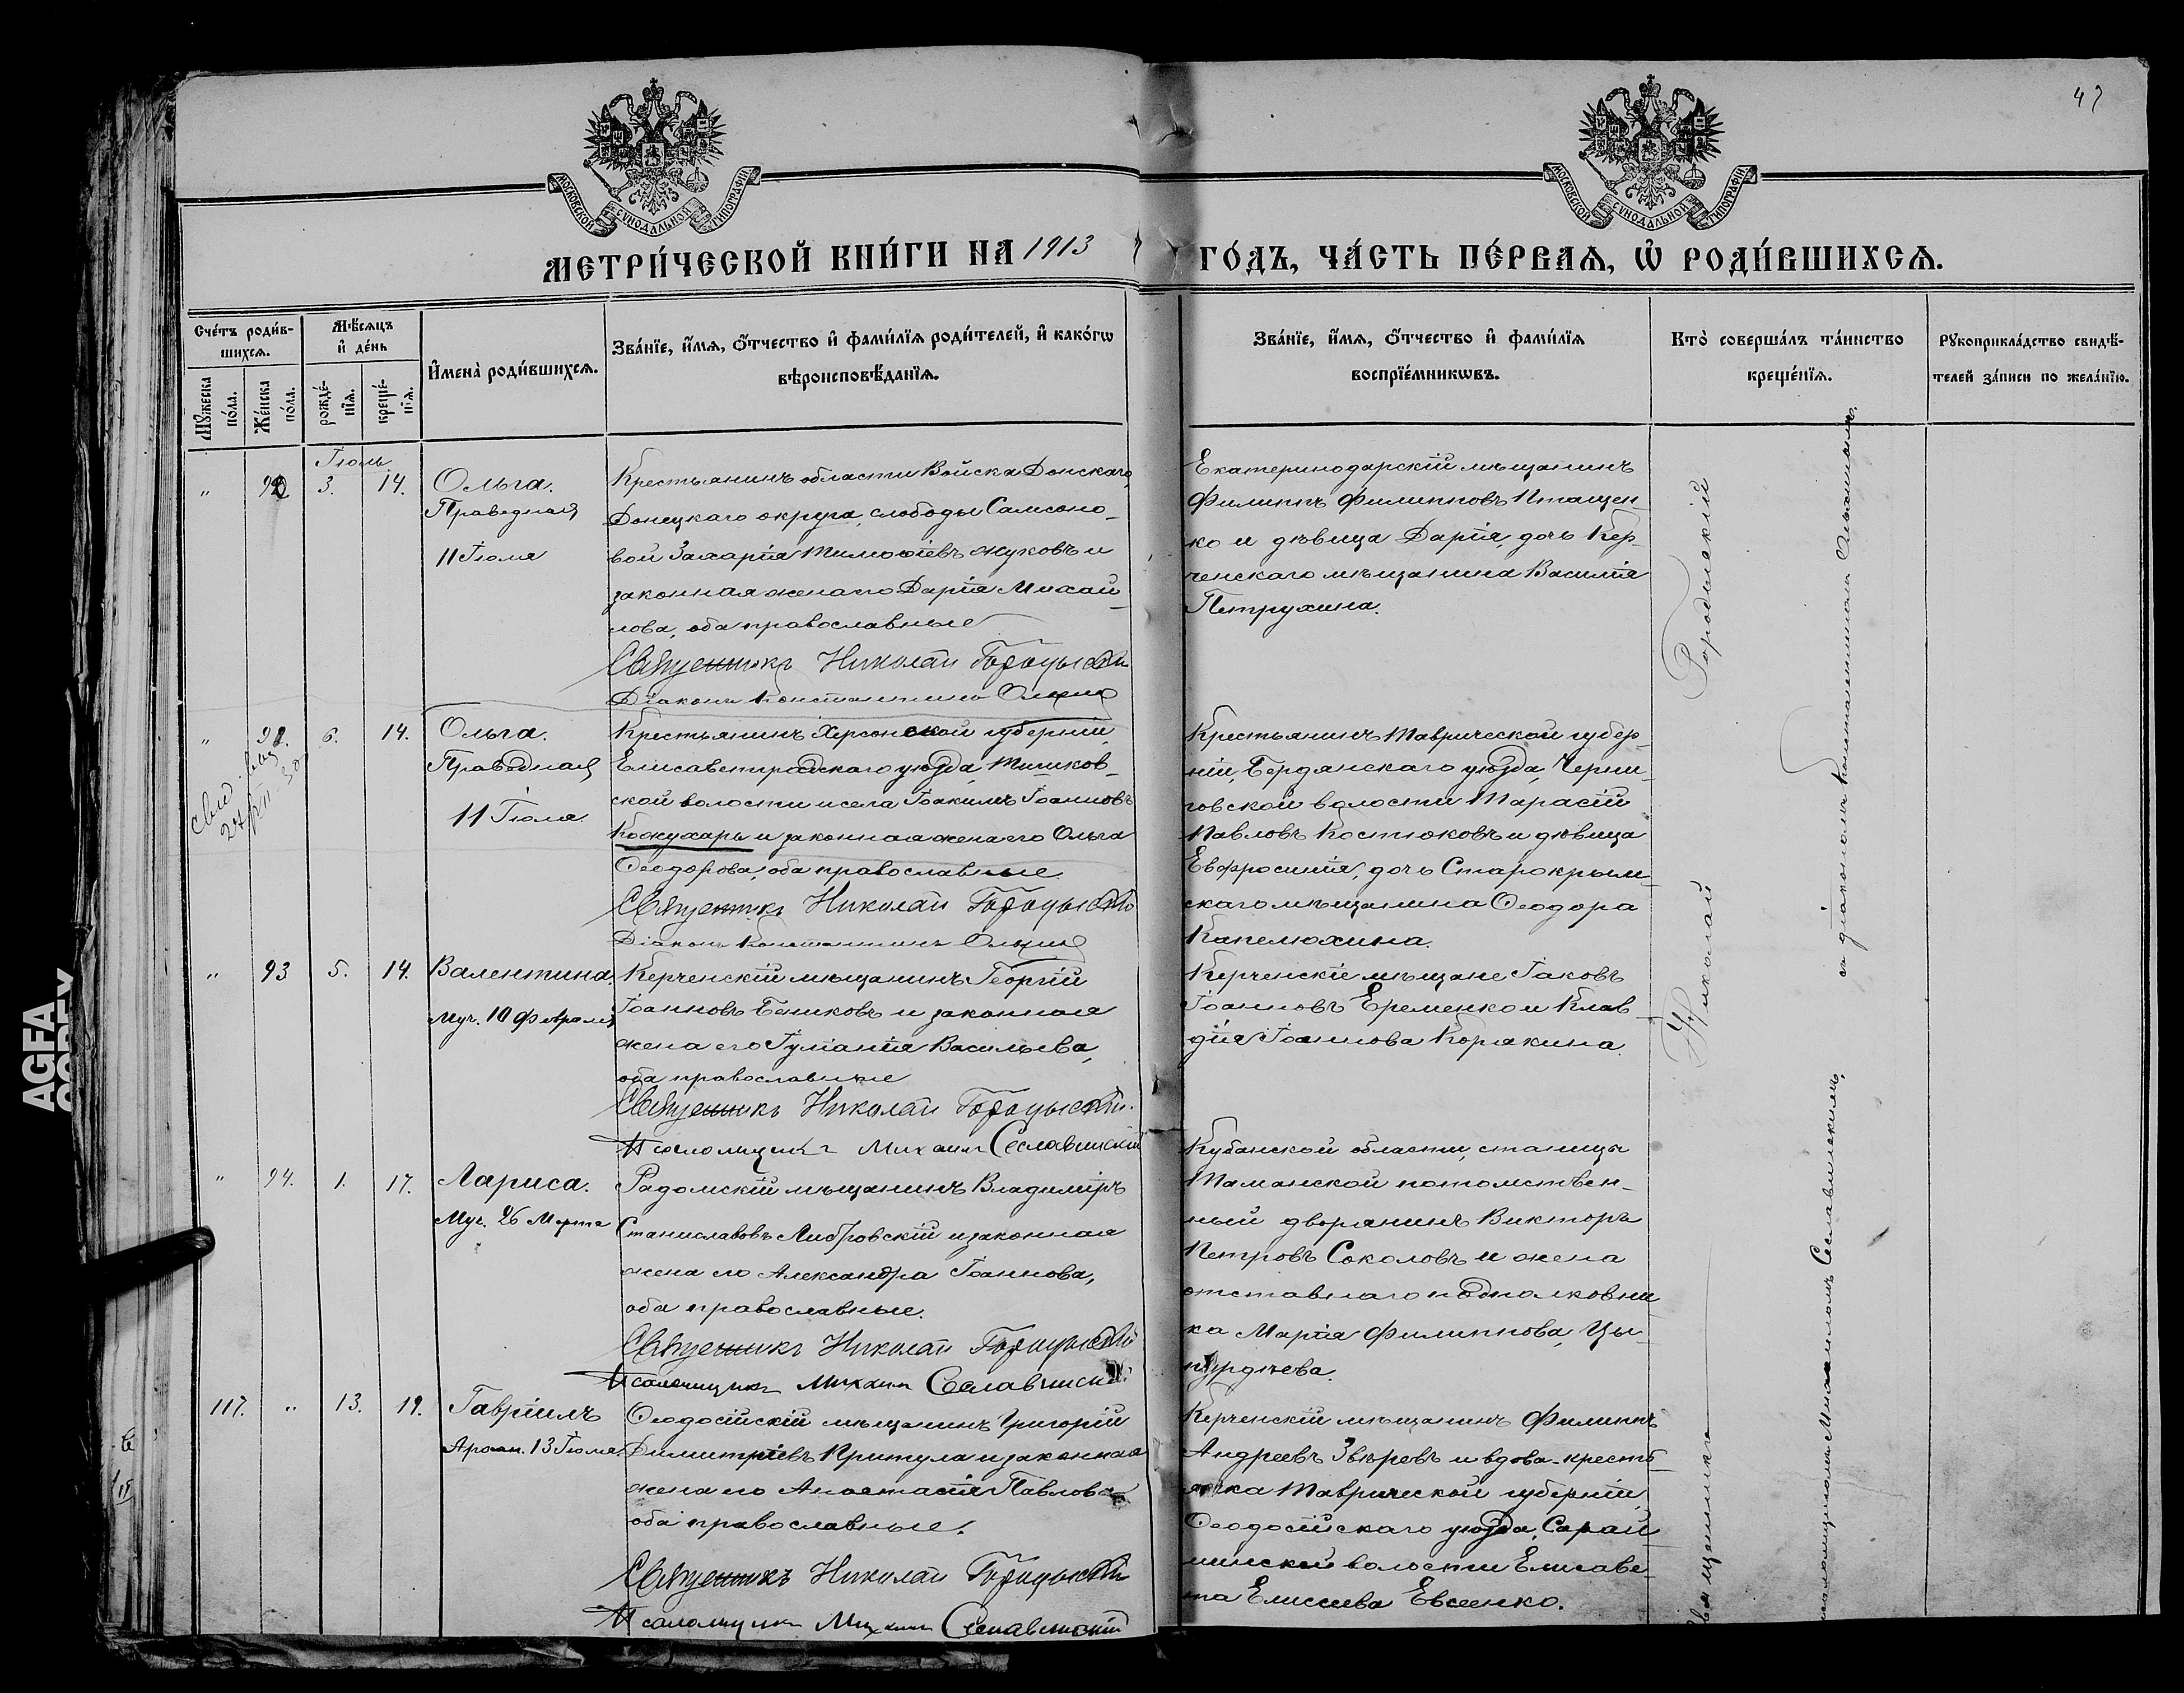 47
МОСКОВСКОЙ СѴНОДАЛЬНОЙ ТИПОГРАФІИ
МОСКОВСКОЙ СѴНОДАЛЬНОЙ ТИПОГРАФІИ
МЕТРИ́ЧЕСКОЙ КНИ́ГИ НА 1913 ГО́ДЪ, ЧА́СТЬ ПЕ́РВАѦ, Ѡ҆ РОДИ́ВШИХСѦ.
Сче́тъ роди́в-
шихсѧ.
Мꙋ́жеска по́ла.
Же́нска по́ла.
Мѣ́сѧцъ
и҆ де́нь
рожде́-
нїѧ.
креще́-
нїѧ.
И҆мена̀ роди́вшихсѧ.
Зва́нїе, и҆́мѧ, ѻ҆́тчество и҆ фами́лїѧ роди́телей, и҆ како́гѡ
вѣроисповѣ́данїѧ.
Зва́нїе, и҆́мѧ, ѻ҆́тчество и҆ фами́лїѧ
воспрїе́мникѡвъ.
Кто̀ соверша́лъ та́инство
креще́нїѧ.
Рꙋкоприкла́дство свидѣ́-
телей за́писи по жела́нїю.
Іюль
" 3. 14. Ольга.
Праведная
11 Іюля
Крестьянинъ области Войска Донскаго,
Донецкаго округа, слободы Самсоно-
вой Захарія Тимоѳіевъ Жуковъ и
законная жена его Дарія Михаи-
лова, оба православные
Священникъ Николай Городыскій
Діаконъ Константинъ
Екатеринодарскій мѣщанинъ
Филиппъ Филипповъ Птащен-
ко и дѣвица Дарія, дочь Кер-
ченскаго мѣщанина Василія
Петрухина.
" 6. 14. Ольга.
Праведная
11 Іюля
Крестьянинъ Херсонской губерніи,
Елисаветградскаго уѣзда,
ской волости и села Іоакимъ Іоанновъ
Кожухарь и законная жена его Ольга
Ѳеодорова, оба православные
Священникъ Николай Городыскій
Діаконъ Константинъ
Крестьянинъ Таврической губер-
ніи, Бердянскаго уѣзда, Черни-
говской волости Тарасій
Павловъ Костюковъ и дѣвица
Евфросинія, дочь Старокрым-
скаго мѣщанина Ѳеодора
Капелюхина.
" 93 5. 14. Валентина.
Муч. 10 Февраля
Керченскій мѣщанинъ Георгій
Іоанновъ Беликовъ и законная
жена его Іуліанія Васильева,
оба православные
Священникъ Николай Городыскій.
Псаломщикъ Михаилъ Сеславинскій
Керченскіе мѣщане Іаковъ
Іоанновъ Еременко и Клав-
дія Іоаннова Корякина.
" 94. 1. 17. Лариса.
Муч. 26 Марта
Радомскій мѣщанинъ Владиміръ
Станиславовъ и законная
жена его Александра Іоаннова,
оба православные.
Священникъ Николай Городыскій
Псаломщикъ Михаилъ Сеславинскій
Кубанской области, станицы
Таманской потомствен-
ный дворянинъ Викторъ
Петровъ Соколовъ и жена
отставнаго подполковни-
ка Марія Филиппова
117. " 13. 19. Гавріилъ
13 Іюля.
Ѳеодосійскій мѣщанинъ Григорій
Димитріевъ Притула и законная
жена его Анастасія Павлова
оба православные.
Священникъ Николай Городыскій
Псаломщикъ Михаилъ Сеславинскій
Керченскій мѣщанинъ Филиппъ
Андреевъ Звѣревъ и вдова-кресть-
янка Таврической губерніи,
Ѳеодосійскаго уѣзда, Сарай-
минской волости Елисаве-
та Елисеева Евсеенко.
Священникъ Николай Городыскій
съ діакономъ Константиномъ
псаломщикомъ Михаиломъ Сеславинскимъ,
AGFA